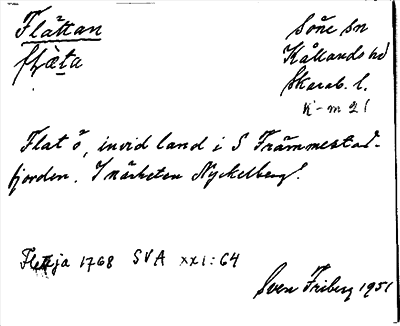 Flättan
Söne sn
flæ̀ta
Kållands hd
Skarab. l.
K-m 21
Flat ö, invid land i S Främmestad-
fjorden. I närheten Nyckelberg.
1768 SVA XXI:64
Sven Friberg 1951